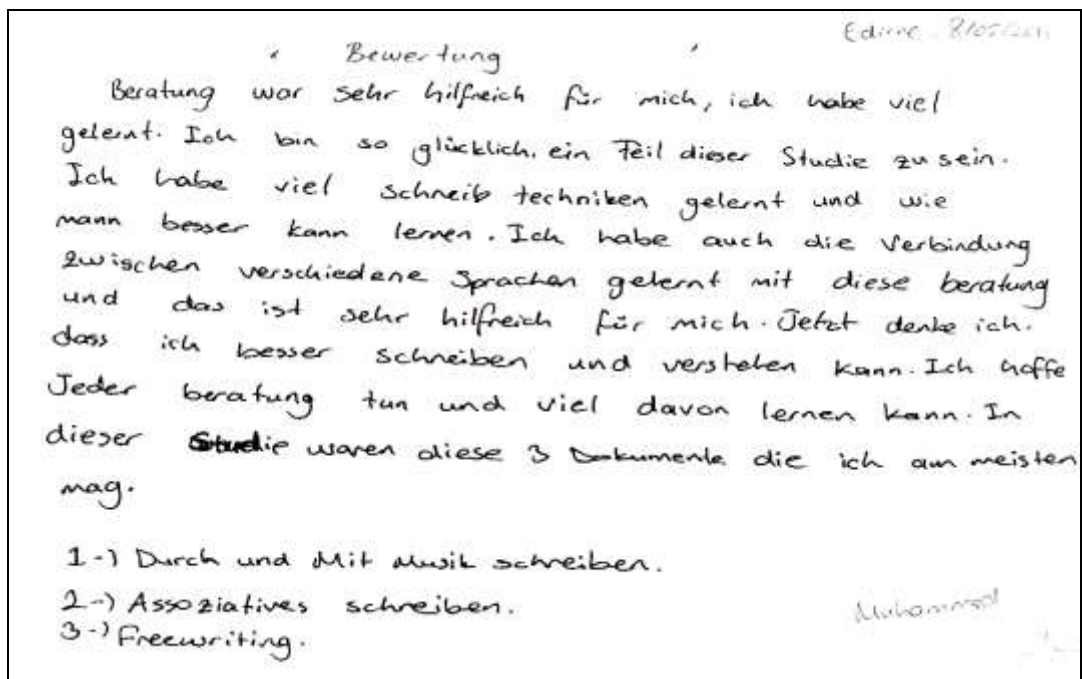 Edirne
Bewertung
Beratung war sehr hilfreich für mich, ich habe viel
gelernt. Ich bin so glücklich, ein Teil dieser Studie zu sein.
Ich habe viel schreib techniken gelernt und wie
mann besser kann lernen. Ich habe auch die Verbindung
zwischen verschiedene Sprachen gelernt mit diese beratung
und das ist sehr hilfreich für mich. Jetzt denke ich.
dass ich besser schreiben und verstehen kann. Ich hoffe
Jeder beratung tun und viel davon lernen kann. In
dieser Studie waren diese 3 Dokumente die ich am meisten
mag.
1-) Durch und Mit Musik schreiben.
2-) Assoziatives schreiben.
3-) Freewriting.
Muhammed